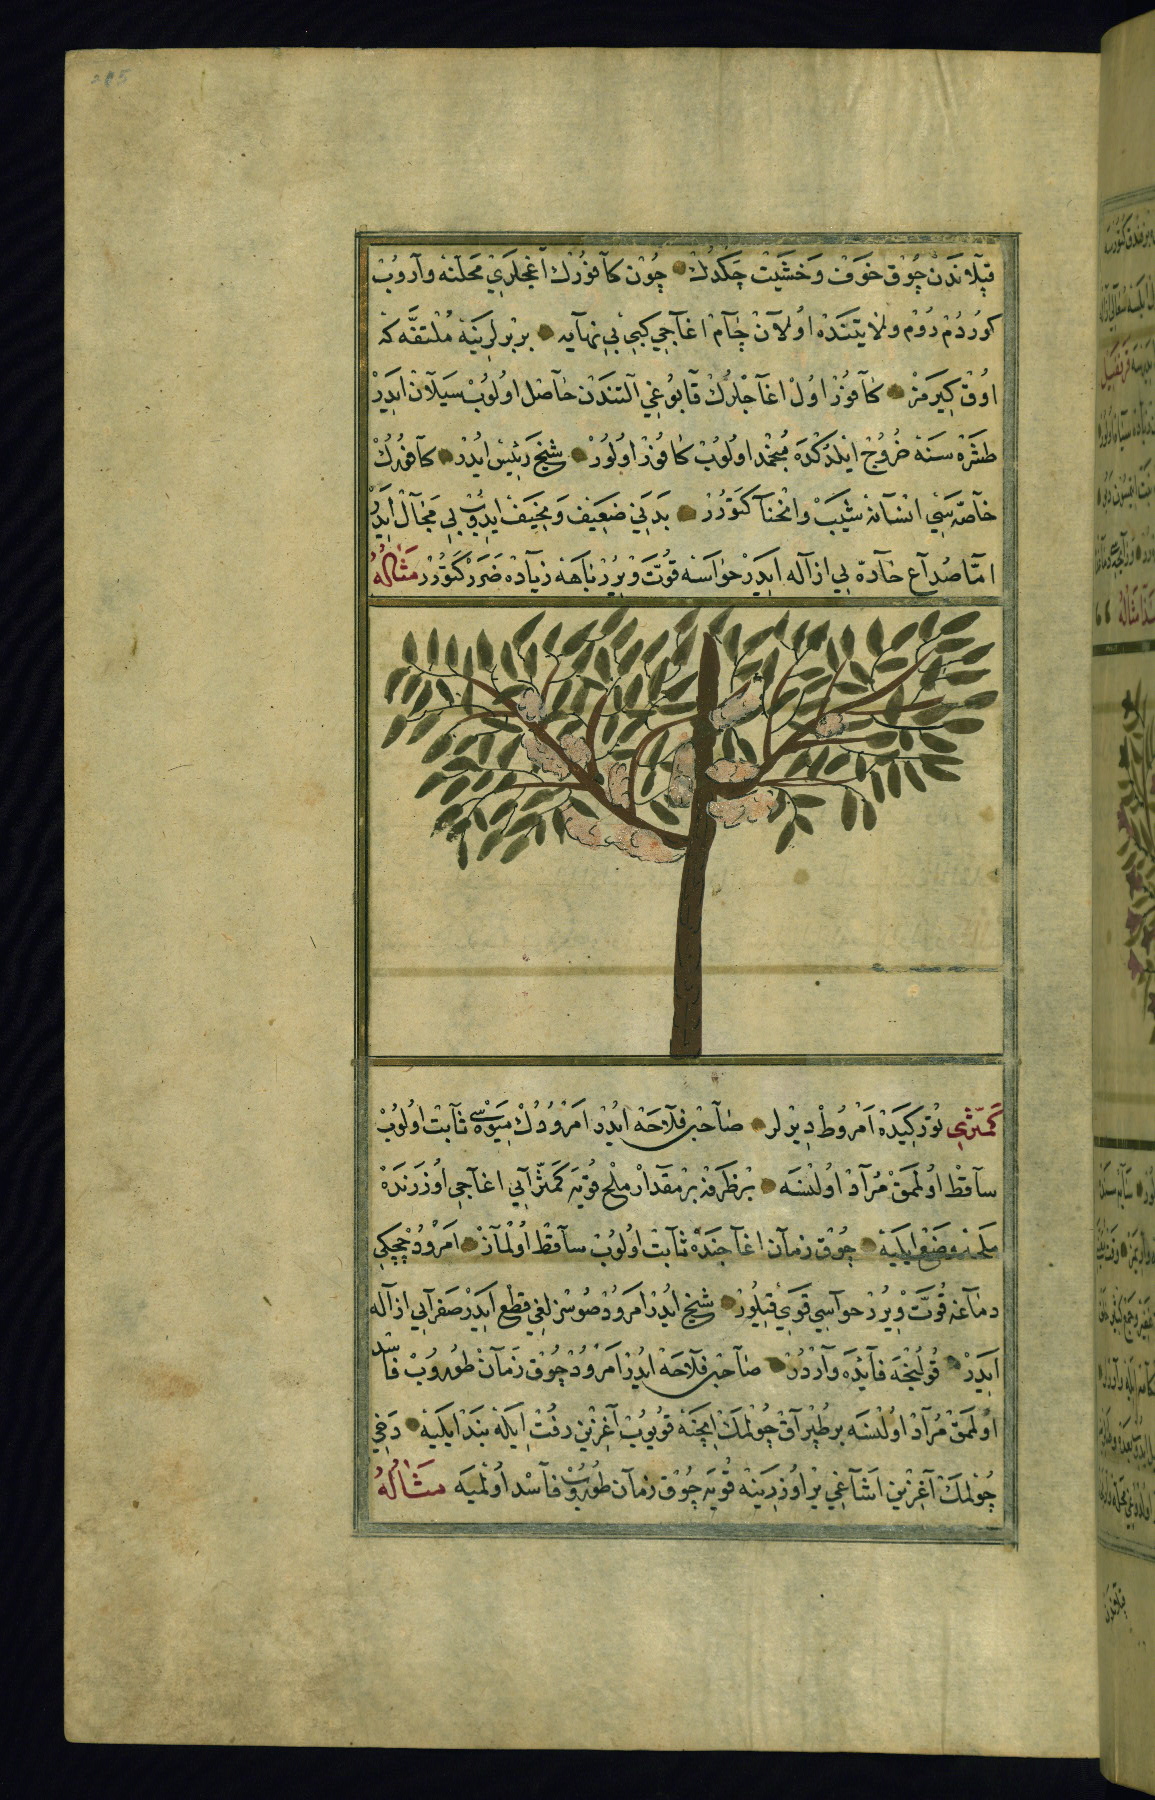 قپلاندن چوق خوف وخشيت چكدك چون كافورك اغجلري محلنه واروب
كوردم روم ولايتنده اولان چام اغاجي كبي بي نهايه بربرلرينه ملتفه كه
اوق كيرمز كافور اول اغاجلرك قابوغي التندن حاصل اولوب سيلان ايدر
طشره سنه خروج ايلدكده منجمد اولوب كافور اولور شيخ رئيس ايدر كافورك
خاصه سي انسانه شيب وانحنا كتورر بدني ضعيف ونحيف ايدوب بي مجال ايدر
اما صداع حاده يي ازاله ايدر حواسه قوت ويرر باهه زياده ضرر كتورر مثاله
كمثري توركيده امروط ديرلر صاحب فلاحه ايدر امرودك ميوه سي ثابت اولوب
ساقط اولممق مراد اولنسه بر ظرفه بر مقدار ملح قويه كمثرايي اغاجي اوزرنده
ملحه وضع ايليه چوق زمان اغاجنده ثابت اولوب ساقط اولماز امرود چيچكي
دماغه قوت ويرر حواسي قوي قيلور شيخ ايدر امرود صوسزلغي قطع ايدر صفرايي ازاله
ايدر قولنجه فائده واردر صاحب فلاحه ايدر امرود چوق زمان طوروب فاسد
اولممق مراد اولنسه بر طپراق چولمك ايچنه قويوب آغزين زفت ايله بند ايليه دخي
چولمك آغزين اشاغي ير اوزرينه قويه چوق زمان طوروب فاسد اولميه مثاله